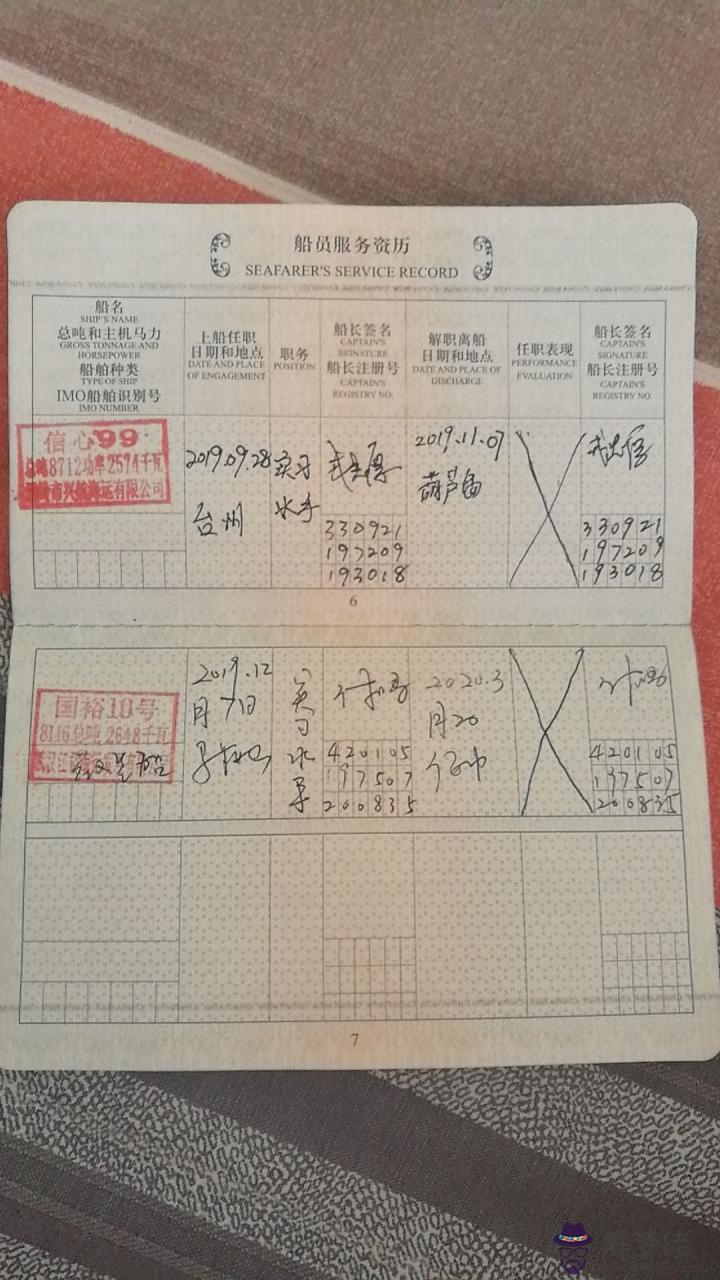 船员服务资历
SEAFARER'S SERVICE RECORD
船名
SHIP'S NAME
总吨和主机马力
GROSS TONNAGE AND
HORSEPOWER
船舶种类
TYPE OF SHIP
IMO船舶识别号
IMO NUMBER
上船任职
日期和地点
DATE AND PLACE
OF ENGAGEMENT
职务
POSITION
船长签名
CAPTAIN'S
SIGNATURE
船长注册号
CAPTAIN'S
REGISTRY NO.
解职离船
日期和地点
DATE AND PLACE OF
DISCHARGE
任职表现
PERFORMANCE
EVALUATION
船长签名
CAPTAIN'S
SIGNATURE
船长注册号
CAPTAIN'S
REGISTRY NO.
信心99
总吨8712功率2574千瓦
市兴航海运有限公司
2019.09.28
台州
实习
水手
330921
197209
193018
2019.11.07
葫芦岛
330921
197209
193018
6
国裕10号
8116总吨 2648千瓦
2019.12
月7日
实
习
水
手
420105
197507
200835
2020.3
月20
420105
197507
200835
7